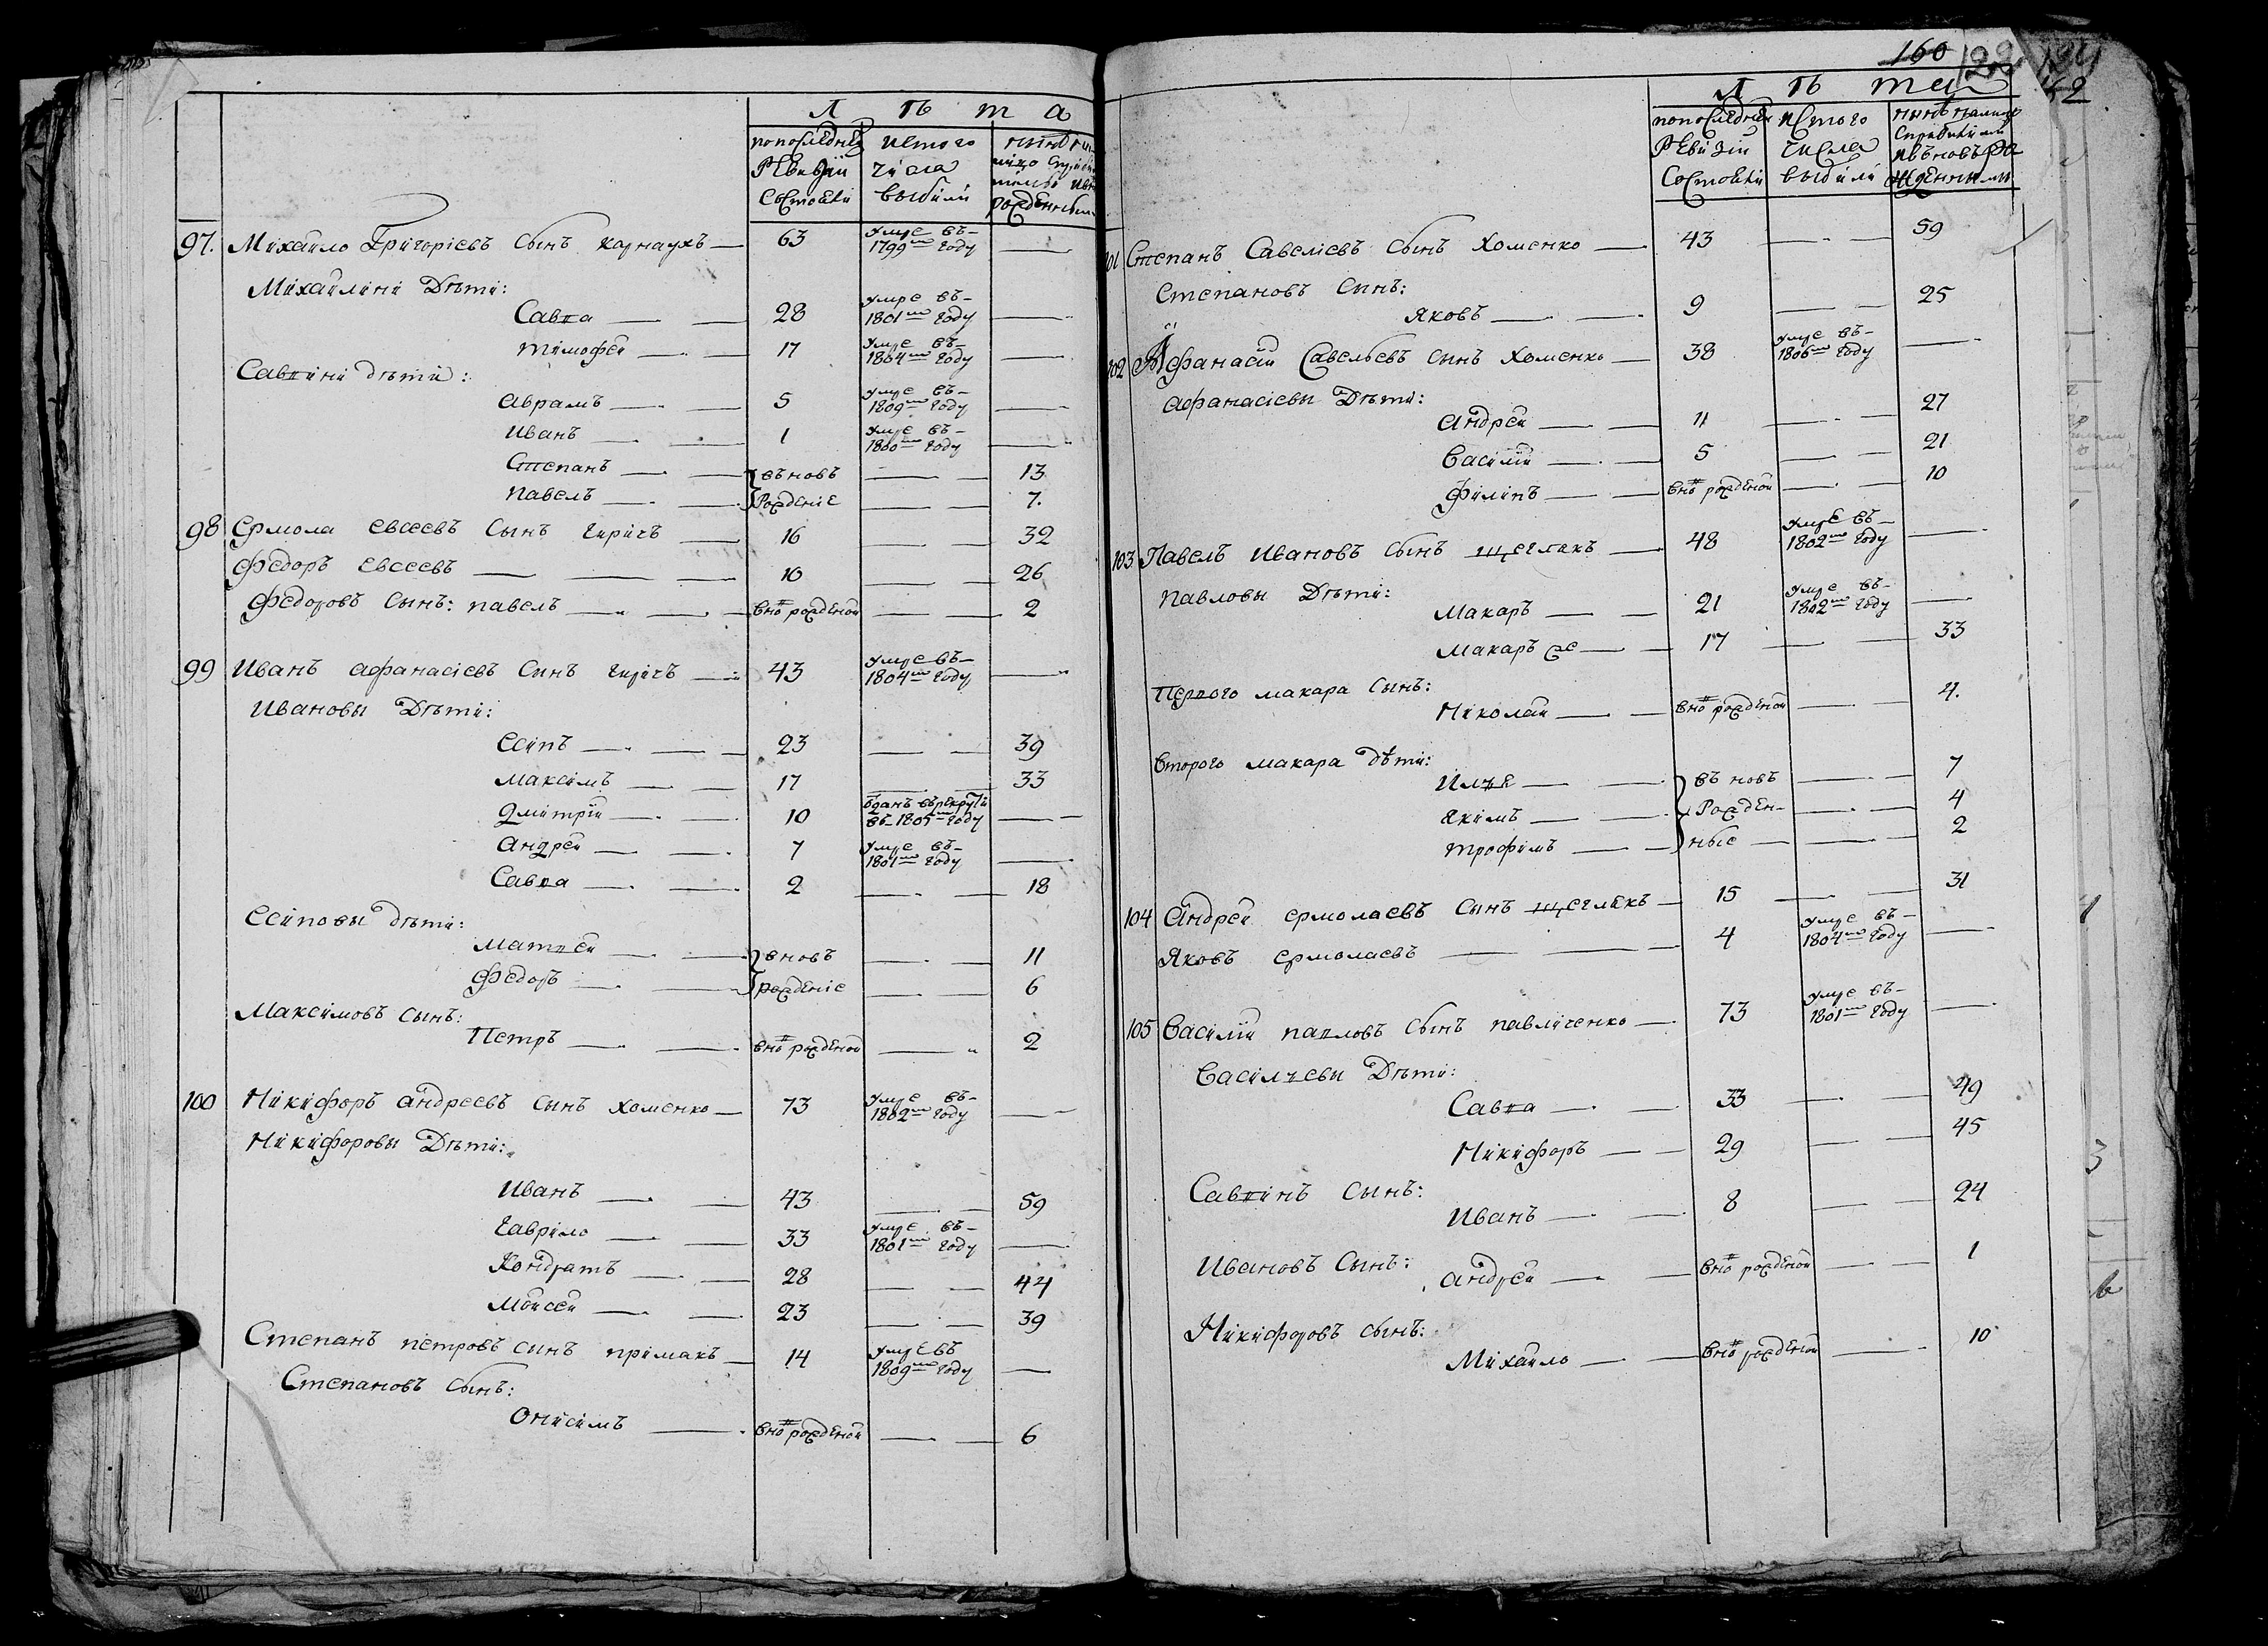 Л ѣ т а
попоследней изтого
Ревизїи числа
Состояли выбыли
97. Михайло Григорїевъ сынъ карнаухъ — 63 умре въ 1799м году —
Михайлини Дѣти:
Савка — 28 умре въ 1801м году —
тимофей — 17 умре въ 1804м году —
Савкини дѣти:
аврамъ — 5 умре въ 1809м году —
иванъ — 1 умре въ 1800м году —
Степанъ — въновь — 13
павелъ — Рожденїе — 7.
98 Ермола евсеевъ сынъ чиричъ — 16 — 32
федоръ евсеевъ — 10 — 26
федоровъ сынъ: павелъ — внѡ рожденой — 2
99 Иванъ афанасїевъ сынъ чиричъ — 43 умре въ 1804м году —
ивановы Дѣти:
есипъ — 23 — 39
максимъ — 17 — 33
дмитрїи — 10 ѡданъ въ рекруты въ 1805м году —
андрей — 7 умре въ 1801м году —
Савка — 2 — 18
есиповы дѣти:
матвей — вновь — 11
федоръ — рожденїе — 6
максимовъ сынъ:
петръ — внѡ рожденой — 2
100 Никифоръ андреевъ сынъ хоменко — 73 умре въ 1802м году —
Никифоровы Дѣти:
иванъ — 43 — 59
гаврило — 33 умре въ 1801м году —
Кондратъ — 28 — 44
моисей — 23 — 39
Степанъ петровъ сынъ примакъ — 14 умре въ 1809м году —
Степановъ сынъ:
онисимъ — внѡ рожденой — 6
160
122
42
Л ѣ та
попоследней изтого
Ревизїи числа
Состояли выбыли
101 Степанъ Савелїевъ сынъ хоменко — 43 — 59
степановъ сынъ:
яковъ — 9 — 25
102 Афанасїй Савельевъ сынъ хоменко — 38 умре въ 1806м году —
афанасїевы Дѣти:
андрей — 11 — 27
василїй — 5 — 21
филипъ — внѡ рожденой — 10
103 Павелъ ивановъ сынъ щеглякъ — 48 умре въ 1802м году —
павловы Дѣти:
макаръ — 21 умре въ 1802м году —
макаръ же — 17 — 33
первого макара сынъ:
Николай — внѡ рожденой — 4.
второго макара дѣти:
илья — въ новь — 7
якимъ — Рожден- — 4
трофимъ — ные — 2
104 андрей ермолаевъ сынъ щеглякъ — 15 — 31
яковъ ермолаевъ — 4 умре въ 1804м году —
105 василїй павловъ сынъ павличенко — 73 умре въ 1801м году —
васильевы Дѣти:
Савка — 33 — 49
Никифоръ — 29 — 45
Савкинъ сынъ:
иванъ — 8 — 24
ивановъ сынъ:
андрей — внѡ рожденой — 1
Никифоровъ сынъ:
Михайло — внѡ рожденой — 10